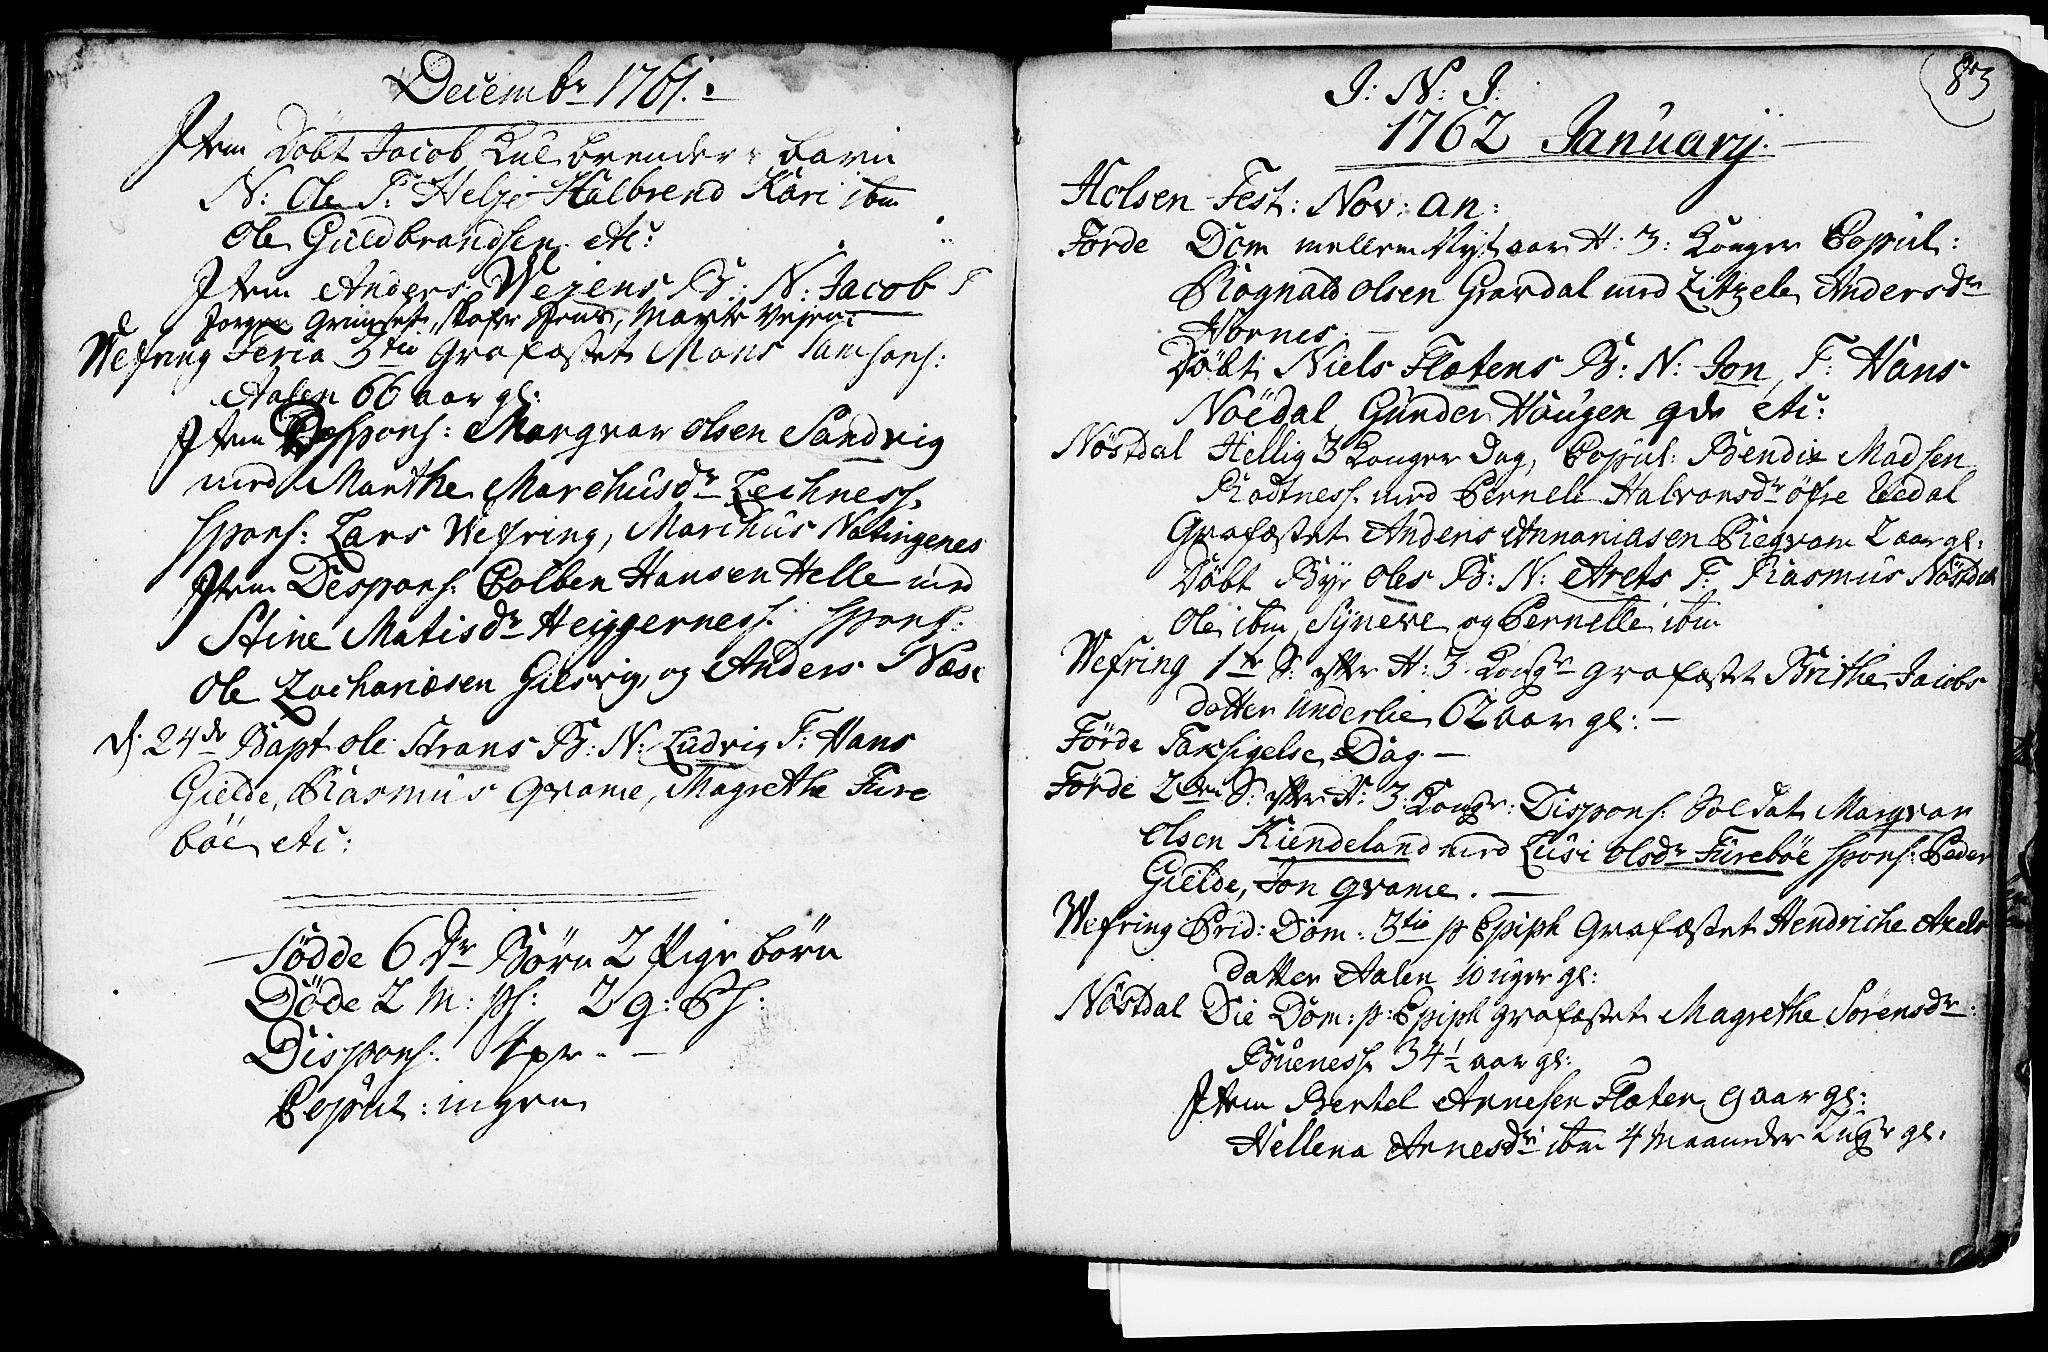 Decembr 1761.
Item Döbt Jacob Kulbrenders barn
N: Ole F: Helje Halbrend Kari ibm
Ole Guldbrandsen etc:
Item Anders Wejens B: N: Jacob F
Jorgen Grimset, Marte Vejen
Wefring Feria 3tia Grafæstet Mons Samsons:
Aalen 66 aar gl:
Item Despons: Margvar Olsen Sandvig
med Marthe Marchusdr Lechness.
spons: Lars Wefring, Marchus Natingenes
Item Despons: Colben Hansen Helle med
Stine Matisdr Heiggerness. spons:
Ole Zachariæsen Gilsvig, og Anders Næss
d: 24de Bapt Ole Strans B: N: Ludvig F: Hans
Gielde, Rasmus qvame, Magrethe Fure
böe etc:
Födde 6 Dr Börn 2 Pige börn
Döde 2 M: Ps: 2 q: Ps:
Dispons: 4 pr. —
Copul: ingen
83
J: N: J:
1762 January.
Holsen Fest: Nov: an:
Förde Dom mellem Nyt aar H: 3: Konger Copul:
Rognald Olsen Gravdal med Zitzele Andersdr
Hornes. —
Döbt Niels Flatens B: N: Jon, F: Hans
Noëdal Gunder Haugen qde etc:
Nöstdal Hellig 3 Konger Dag, Copul: Bendix Madsen
Rodtness. med Pernele Halvorsdr öfre Uedal
Grafæstet Anders Annaniasen Riegvam 2 aar gl:
Döbt Byr Oles B: N: Arets F: Rasmus Nöstdal
Ole ibm, Syneve og Pernelle ibm
Wefring 1te S: efter H: 3. Kongr grafæstet Brithe Jacobs
datter Underlie 62 aar gl: —
Förde Taksigelse Dag. —
Förde 2den S: efter H: 3: Kongr: Dispons: Soldat Margvar
Olsen Kiendeland med Lusi Olsdr Fureböe spons: Peder
Gielde, Jon qvame. —
Wefring Prid: Dom: 3tia p Epiph Grafæstet Hendriche Axels
datter Aalen 10 uger gl:
Nöstdal Die Dom: p: Epiph grafæstet Magrethe Sörensdr:
Bueness. 34½ aar gl:
Item Bertel Arnesen Flaten 9 aar gl:
Hellena Arnesdr ibm 4 Maaneder 2 ugr gl: